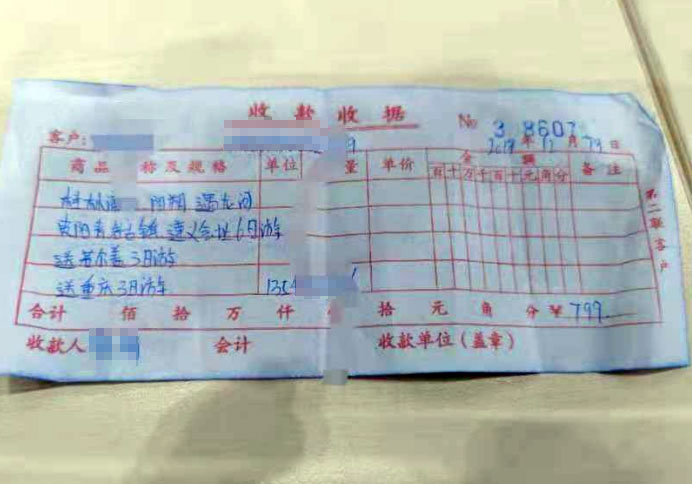 收款收据
№ 3 8607
客户:
2018年12月29日
商品 称及规格 单位 量 单价 金额 备注
百十万千百十元角分
桂林 阳朔 遇龙河
贵阳青岩古镇 遵义会址6日游
送若尔盖3日游
送重庆3日游 1354
合计 佰 拾 万 仟 拾 元 角 分 ¥799
收款人 会计 收款单位(盖章)
第二联客户